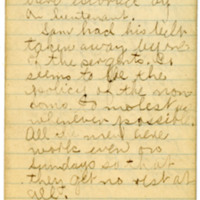 have advance by
a lieutenant.
Sam had his belt
taken away before
the sergents. It
seems to be the
policy of the non
coms. to molest us
whenever possible.
All the men here
work even on
Sundays so that
they get no rest at
all.